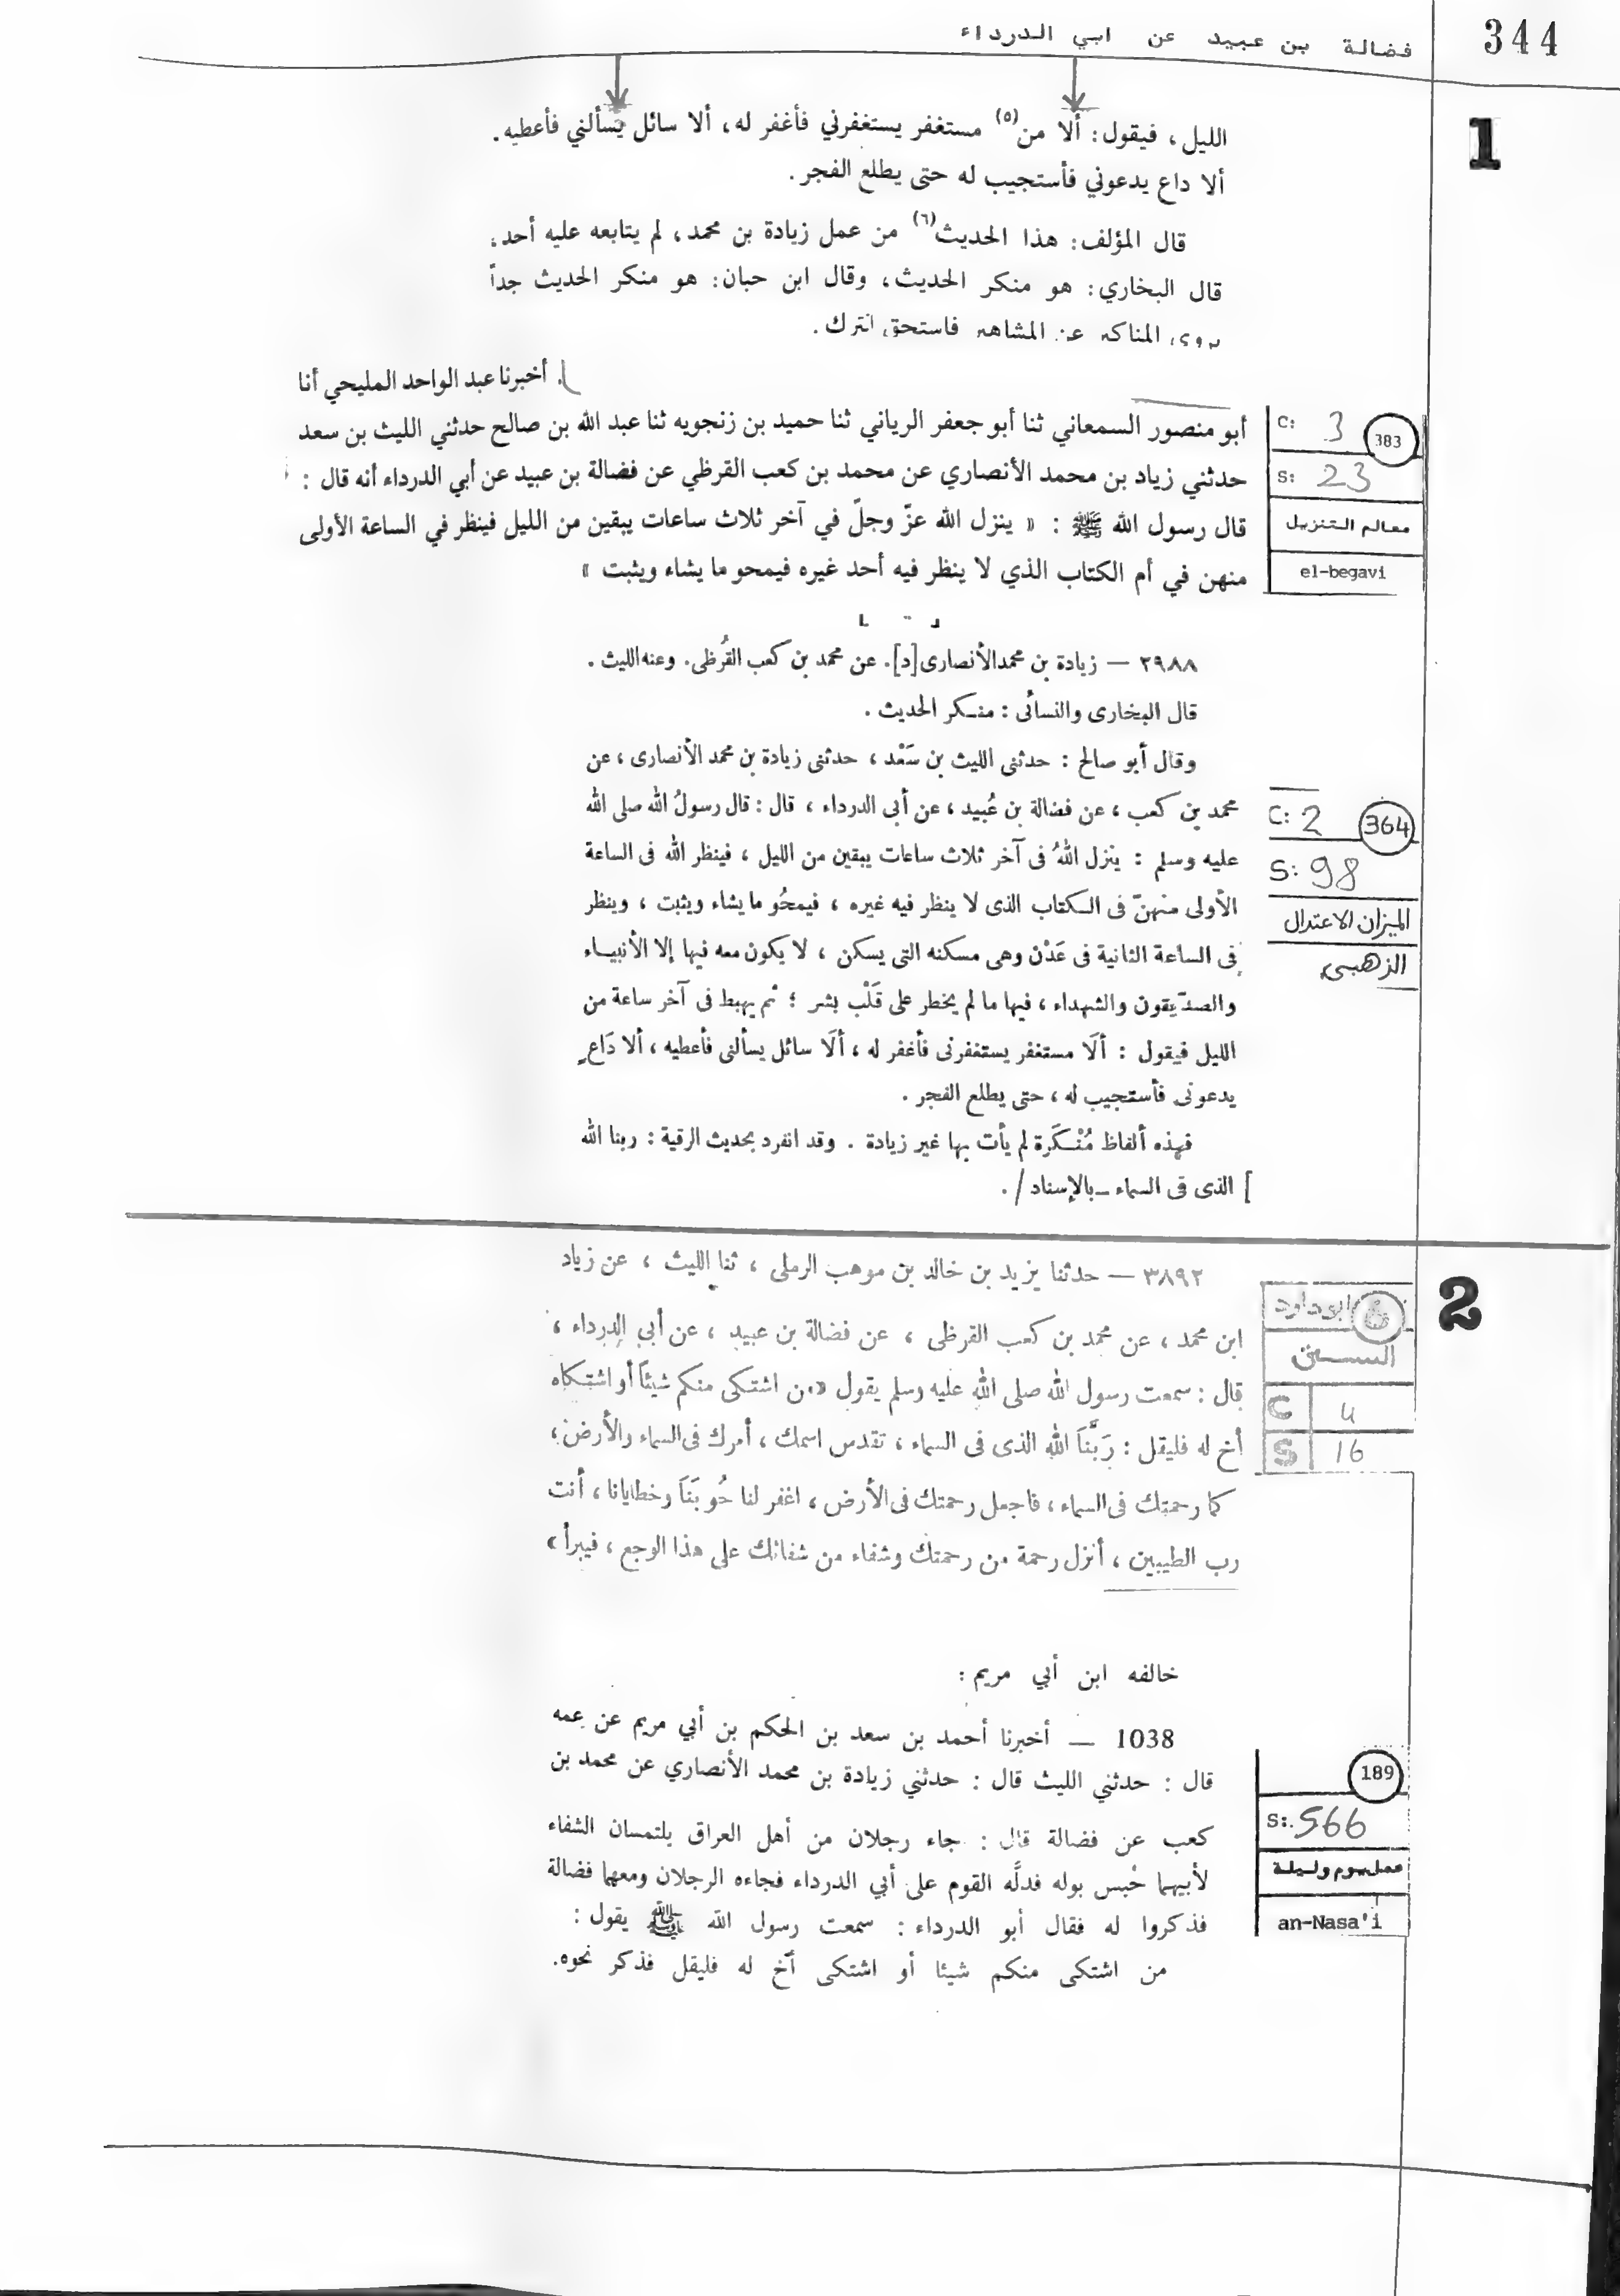 344
فضالة بن عبيد عن ابي الدرداء
1
الليل، فيقول: ألا من(٥) مستغفر يستغفرني فأغفر له، ألا سائل يسألني فأعطيه.
ألا داع يدعوني فأستجيب له حتى يطلع الفجر.
قال المؤلف: هذا الحديث(٦) من عمل زيادة بن محمد، لم يتابعه عليه أحد،
قال البخاري: هو منكر الحديث، وقال ابن حبان: هو منكر الحديث جداً
يروي المناكير عن المشاهير فاستحق الترك.
أخبرنا عبد الواحد المليحي أنا
أبو منصور السمعاني ثنا أبو جعفر الرياني ثنا حميد بن زنجويه ثنا عبد الله بن صالح حدثني الليث بن سعد
حدثني زياد بن محمد الأنصاري عن محمد بن كعب القرظي عن فضالة بن عبيد عن أبي الدرداء أنه قال :
قال رسول الله ﷺ : « ينزل الله عزّ وجلّ في آخر ثلاث ساعات يبقين من الليل فينظر في الساعة الأولى
منهن في أم الكتاب الذي لا ينظر فيه أحد غيره فيمحو ما يشاء ويثبت »
383
C: 3
S: 23
معالم التنزيل
el-begavi
٢٩٨٨ — زيادة بن محمد الأنصارى [د]. عن محمد بن كعب القُرظى. وعنه الليث .
قال البخارى والنسائى : منكر الحديث .
وقال أبو صالح : حدثنى الليث بن سَعْد ، حدثنى زيادة بن محمد الأنصارى ، عن
محمد بن كعب ، عن فضالة بن عُبيد ، عن أبى الدرداء ، قال : قال رسولُ الله صلى الله
عليه وسلم : ينزل اللهُ فى آخر ثلاث ساعات يبقين من الليل ، فينظر الله فى الساعة
الأولى منهنّ فى الكتاب الذى لا ينظر فيه غيره ، فيمحُو ما يشاء ويثبت ، وينظر
فى الساعة الثانية فى عَدْن وهى مسكنه التى يسكن ، لا يكون معه فيها إلا الأنبياء
والصدّيقون والشهداء ، فيها ما لم يخطر على قَلْب بشر ؛ ثم يهبط فى آخر ساعة من
الليل فيقول : ألَا مستغفر يستغفرنى فأغفر له ، ألَا سائل يسألنى فأعطيه ، ألا دَاعٍ
يدعونى فأستجيب له ، حتى يطلع الفجر .
فهذه ألفاظ مُنْكَرة لم يأت بها غير زيادة . وقد انفرد بحديث الرقية : ربنا الله
الذى فى السماء ــ بالإسناد .
364
C: 2
S: 98
الميزان الاعتدال
الزهبي
2
٣٨٩٢ — حدثنا يزيد بن خالد بن موهب الرملى ، ثنا الليث ، عن زياد
ابن محمد ، عن محمد بن كعب القرظى ، عن فضالة بن عبيد ، عن أبي الدرداء ،
قال : سمعت رسول الله صلى الله عليه وسلم يقول « من اشتكى منكم شيئاً أو اشتكاه
أخ له فليقل : رَبَّنَا الله الذى فى السماء ، تقدس اسمك ، أمرك فى السماء والأرض ،
كما رحمتك فى السماء ، فاجعل رحمتك فى الأرض ، اغفر لنا حُوبَنَا وخطايانا ، أنت
رب الطيبين ، أنزل رحمة من رحمتك وشفاء من شفائك على هذا الوجع ، فيبرأ »
ابوداود
السنن
C 4
S 16
خالفه ابن أبي مريم :
1038 — أخبرنا أحمد بن سعد بن الحكم بن أبي مريم عن عمه
قال : حدثني الليث قال : حدثني زيادة بن محمد الأنصاري عن محمد بن
كعب عن فضالة قال : جاء رجلان من أهل العراق يلتمسان الشفاء
لأبيهما حُبس بوله فدلَّه القوم على أبي الدرداء فجاءه الرجلان ومعهما فضالة
فذكروا له فقال أبو الدرداء : سمعت رسول الله ﷺ يقول :
من اشتكى منكم شيئا أو اشتكى أخ له فليقل فذكر نحوه.
189
S: 566
عمل يوم وليلة
an-Nasa'i